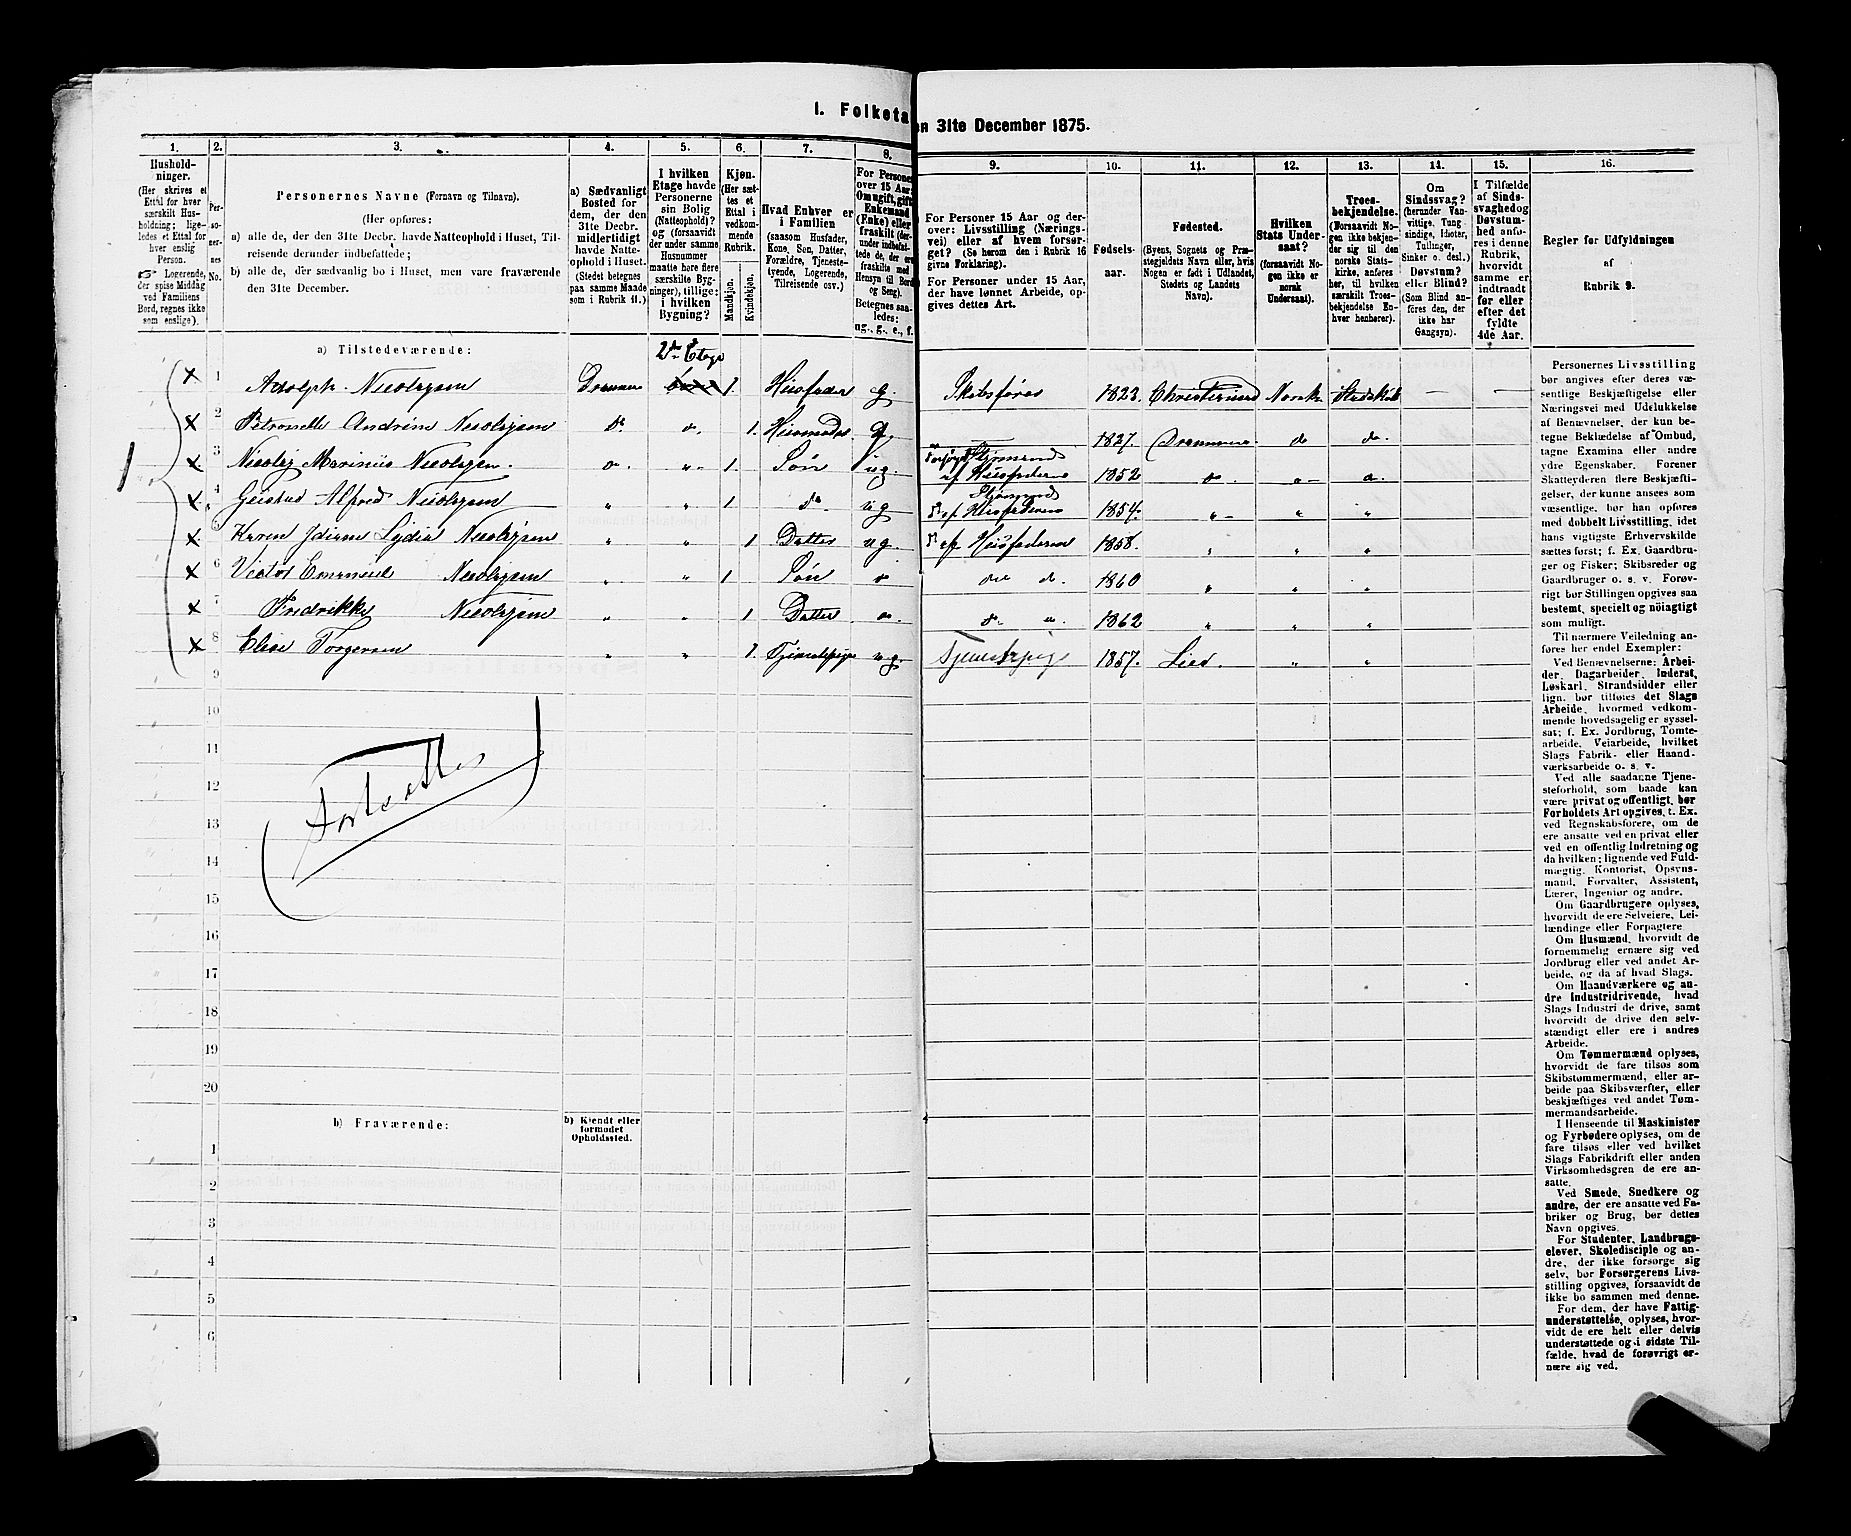 I. Folketa
en 31te December 1875.
1.
2.
3.
4.
5.
6.
7.
8.
9.
10.
11.
12.
13.
14.
15.
16.
Hushold-
ninger.
(Her skrives et
Ettal for hver
særskilt Hus-
holdning; lige-
ledes et Ettal for
hver enslig
Person.
☞ Logerende,
der spise Middag
ved Familiens
Bord, regnes ikke
som enslige).
Per-
so-
ner-
nes
No.
Personernes Navne (Fornavn og Tilnavn).
(Her opføres:
a) alle de, der den 31te Decbr. havde Natteophold i Huset, Til-
reisende derunder indbefattede;
b) alle de, der sædvanlig bo i Huset, men vare fraværende
den 31te December.
a) Sædvanligt
Bosted for
dem, der den
31te Decbr.
midlertidigt
havde Natte-
ophold i Huset.
(Stedet betegnes
paa samme Maade
som i Rubrik 11.)
I hvilken
Etage havde
Personerne
sin Bolig
(Natteophold)?
og (forsaavidt
der under samme
Husnummer
maatte høre flere
særskilte Byg-
ninger), tillige:
i hvilken
Bygning?
Kjøn.
(Her sæt-
tes et
Ettal i
vedkom-
mende
Rubrik.
Mandkjøn.
Kvindekjøn.
Hvad Enhver er
i Familien
(saasom Husfader,
Kone, Søn, Datter,
Forældre, Tjeneste-
tyende, Logerende,
Tilreisende osv.)
For Personer
over 15 Aar:
Om ugift, gift,
Enkemand
(Enke) eller
fraskilt (der-
under indbefat-
tede de, der ere
fraskilte med
Hensyn til Bord
og Seng).
Betegnes saa-
ledes:
ug., g., e., f.
For Personer 15 Aar og der-
over: Livsstilling (Nærings-
vei) eller af hvem forsør-
get? (Se herom den i Rubrik 16
givne Forklaring).
For Personer under 15 Aar,
der have lønnet Arbeide, op-
gives dettes Art.
Fødsels-
aar.
Fødested.
(Byens, Sognets og Præ-
stegjeldets Navn eller, hvis
Nogen er født i Udlandet,
Stedets og Landets
Navn).
Hvilken
Stats Under-
saat?
(forsaavidt No-
gen ikke er
norsk
Undersaat).
Troes-
bekjendelse.
(Forsaavidt No-
gen ikke bekjen-
der sig til den
norske Stats-
kirke, anføres
her, til hvilken
særskilt Troes-
bekjendelse En-
hver henhører).
Om
Sindssvag?
(herunder Van-
vittige, Tung-
sindige, Idioter,
Tullinger,
Sinker o. desl.)
Døvstum?
eller Blind?
(Som Blind an-
føres den, der
ikke har
Gangsyn).
I Tilfælde
af Sinds-
svaghed og
Døvstum-
hed anfø-
res i denne
Rubrik,
hvorvidt
samme er
indtraadt
før eller
efter det
fyldte
4de Aar.
Regler for Udfyldningen
af
Rubrik 9.
a) Tilstedeværende:
2den Etage
1 Adolph Nicolaysen Drammen 1. Husfader g. Skibsfører 1823 Christiansand Norsk Statskirk — —
2 Petronelle Andrine Nicolaysen do do. 1. Husmoder g. 1827. Drammen do do.
3 Nicolay Marinius Nicolaysen. 1. Søn ug. forsørget Styrmand af Husfaderen 1852
4 Alfred Nicolaysen " " 1 do. ug Styrmand do. af Husfaderen 1854. " " "
5 Karen Lydia Nicolaysen " " 1 Datter ug. do. af Husfaderen 1858. " " "
6 Victor Emanuel Nicolaysen " " 1 Søn do do do. 1860 " " "
7 Fredrikke Nicolaysen " " 1 Datter do. do. 1862 " " "
8 Elise Torgersen " " 1. Tjenestepige ug. Tjenestepige 1857. Lier. " "
1
9
10
11
12
13
14
15
16
17
18
19
20
b) Fraværende:
b) Kjendt eller
formodet
Opholdssted.
1
2
3
4
5
6
Personernes Livsstilling
bør angives efter deres væ-
sentlige Beskjæftigelse eller
Næringsvei med Udelukkelse
af Benævnelser, der kun be-
tegne Beklædelse af Ombud,
tagne Examina eller andre
ydre Egenskaber. Forener
Skatteyderen flere Beskjæfti-
gelser, der kunne ansees som
væsentlige, bør han opføres
med dobbelt Livsstilling, idet
hans vigtigste Erhvervskilde
sættes først; f. Ex. Gaardbru-
ger og Fisker; Skibsreder og
Gaardbruger o. s. v. Forøv-
rigt bør Stillingen opgives saa
bestemt, specielt og nøiagtigt
som muligt.
Til nærmere Veiledning an-
føres her endel Exempler:
Ved Benævnelserne: Arbei-
der, Dagarbeider, Inderst,
Løskarl, Strandsidder eller
lign. bør tilføies det Slags
Arbeide, hvormed vedkom-
mende hovedsagelig er syssel-
sat; f. Ex. Jordbrug, Tomte-
arbeide, Veiarbeide, hvilket
Slags Fabrik- eller Haand-
værksarbeide o. s. v.
Ved alle saadanne Tjene-
steforhold, som baade kan
være privat og offentligt, bør
Forholdets Art opgives, t. Ex.
ved Regnskabsførere, om de
ere ansatte ved en privat eller
ved en offentlig Indretning og
da hvilken; lignende ved Fuld-
mægtig, Kontorist, Opsyns-
mand, Forvalter, Assistent,
Lærer, Ingeniør og andre.
Om Gaardbrugere oplyses,
hvorvidt de ere Selveiere, Lei-
lændinge eller Forpagtere
Om Husmænd, hvorvidt de
fornemmelig ernære sig ved
Jordbrug eller ved andet Ar-
beide, og da af hvad Slags.
Om Haandværkere og an-
dre Industridrivende, hvad
Slags Industri de drive, samt
hvorvidt de drive den selv-
stændigt eller ere i andres
Arbeide.
Om Tømmermænd oplyses,
hvorvidt de fare tilsøs som
Skibstømmermænd, eller ar-
beide paa Skibsværfter, eller
beskjæftiges ved andet Tøm-
mermandsarbeide.
I Henseende til Maskinister
og Fyrbødere oplyses, om de
fare tilsøs eller ved hvilket
Slags Fabrikdrift eller anden
Virksomhedsgren de ere an-
satte.
Ved Smede, Snedkere og
andre, der ere ansatte ved Fa-
briker og Brug, bør dettes
Navn opgives.
For Studenter, Landbrugs-
elever, Skoledisciple og an-
dre, der ikke forsørge sig
selv, bør Forsørgerens Livs-
stilling opgives, forsaavidt de
ikke bo sammen med denne.
For dem, der have Fattig-
understøttelse, oplyses, hvor-
vidt de ere helt eller delvis
understøttede og i sidste Til-
fælde, hvad de forøvrigt er-
nære sig ved.